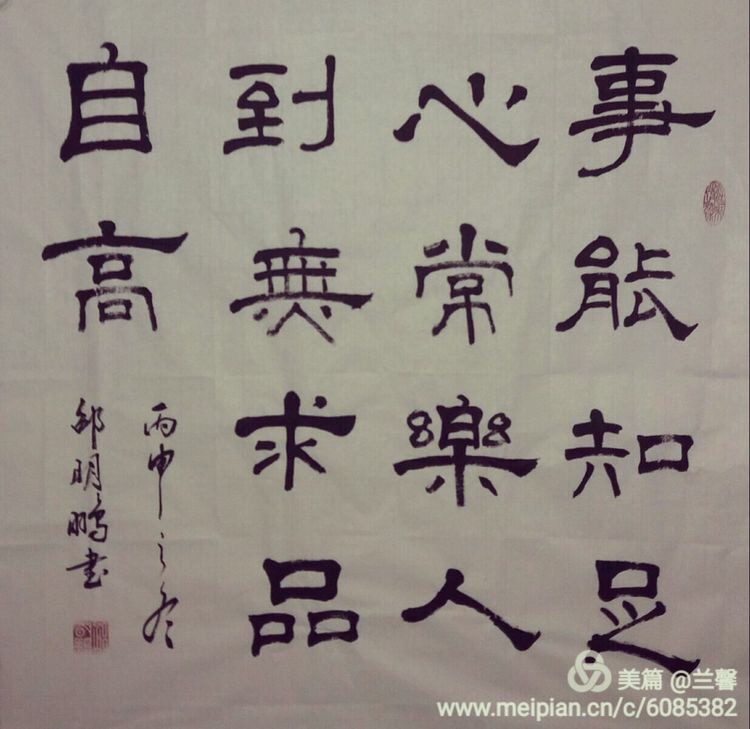 事能知足
心常樂人
到無求品
自高
丙申之冬
邹明鹏书
美篇 @兰馨
www.meipian.cn/c/6085382